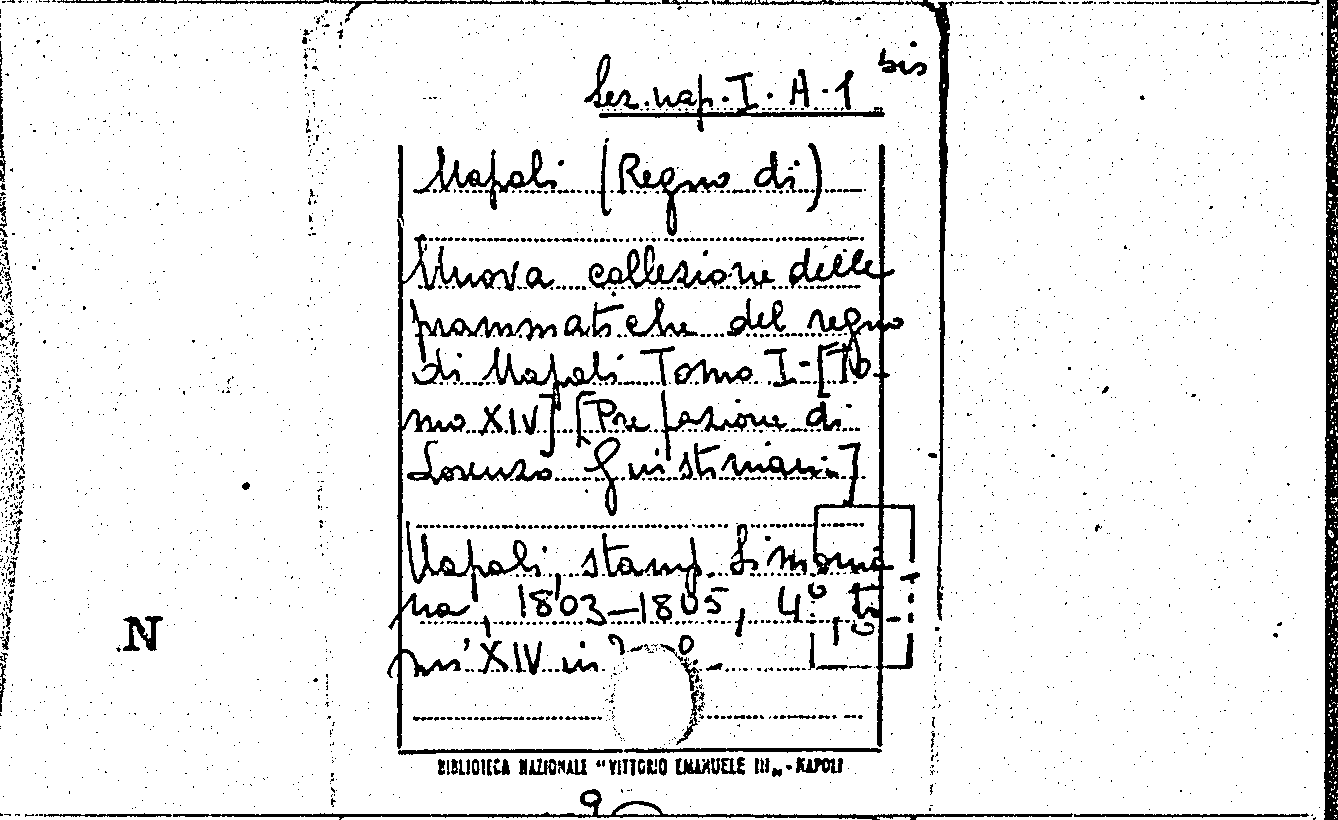 Sez. nap. I. A. 1 bis
Napoli (Regno di)
Nuova collezione delle
prammatiche del regno
di Napoli Tomo I-[To-
mo XIV] [Prefazione di
Lorenzo Giustiniani]
Napoli, stamp. Simonia
na, 1803-1805, 4°, To-
mi XIV in
N
BIBLIOTECA NAZIONALE "VITTORIO EMANUELE III" - NAPOLI
9